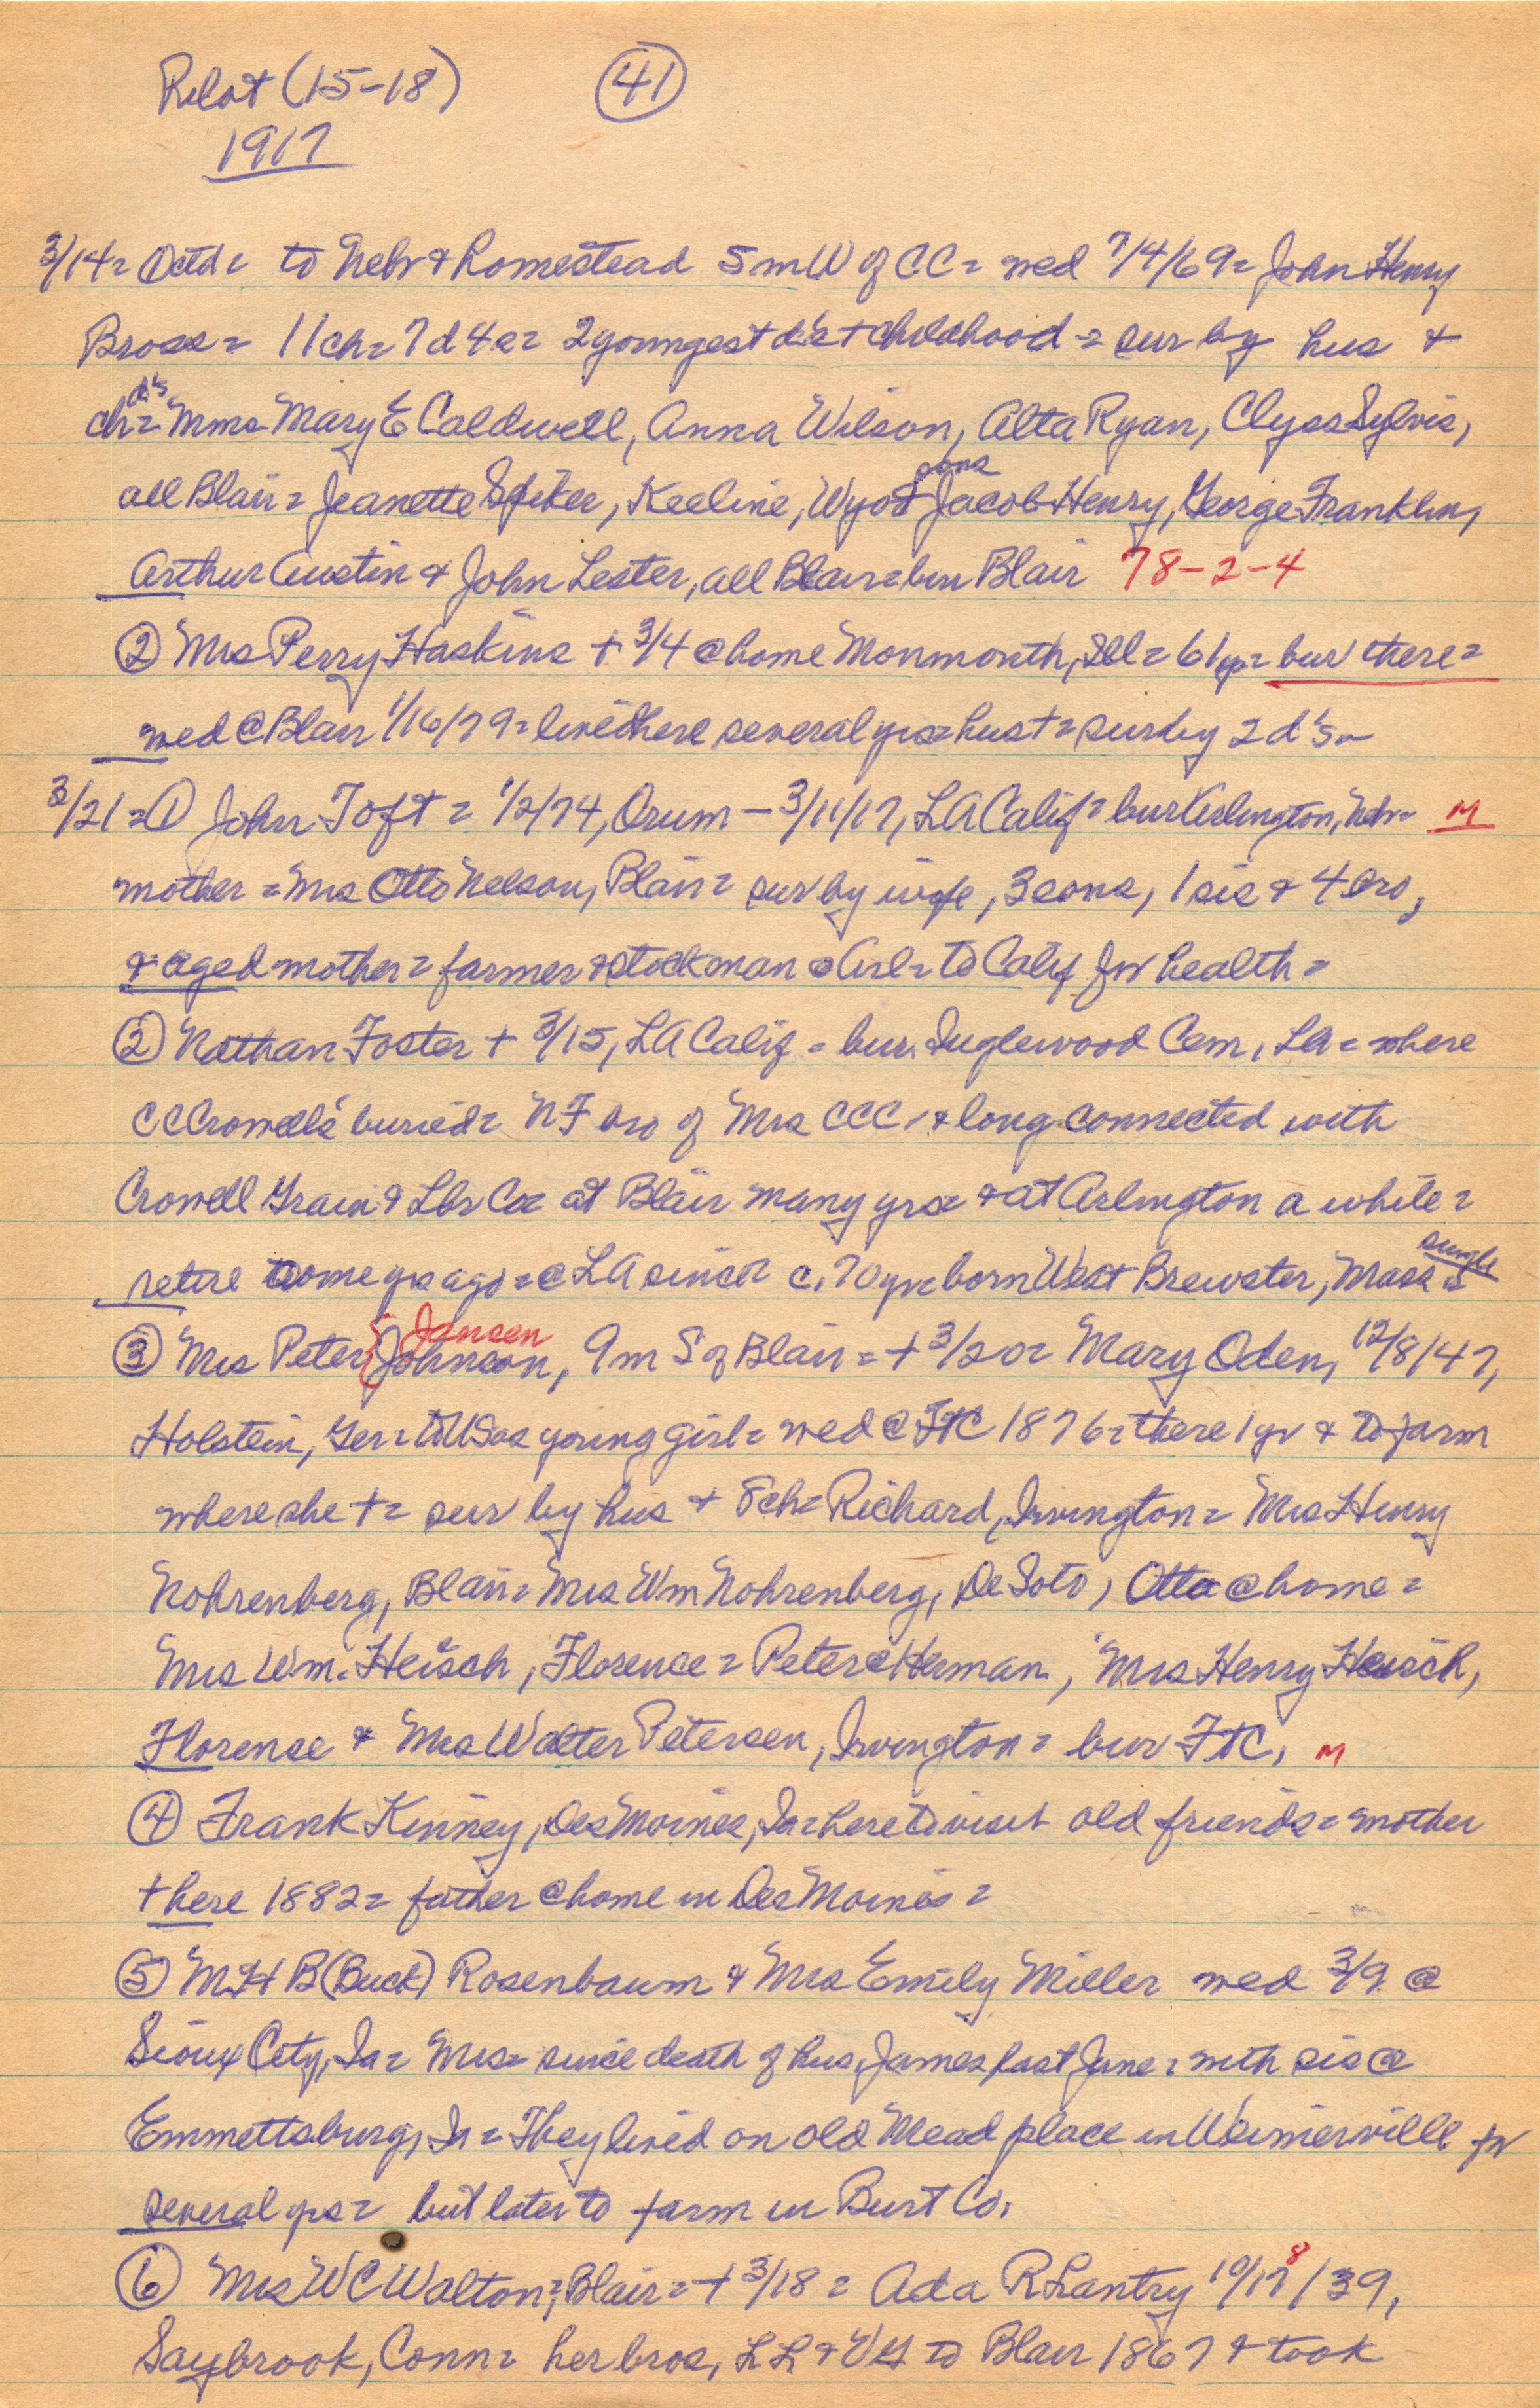 Pilot (15-18) 41
1917
3/14= ① ctd= to Nebr & homestead 5 m W of CC= wed 7/4/69= John Henry
Bross= 11 ch= 7 d 4 s= 2 youngest d's + childhood = sur by hus &
ch= d's Mms Mary E Caldwell, Anna Wilson, Alta Ryan, Clyss Sylvis,
all Blair= Jeanette Spiker, Keeline, Wyo & sons Jacob Henry, George Franklin,
Arthur Austin & John Lester, all Blair= bur Blair 78-2-4
② Mrs Perry Haskins + 3/4 @ home Monmonth, Ill= 61 yr= bur there=
wed @ Blair 1/16/79= lived here several yrs= hus += sur by 2 d's=
3/21= ① John Toft= 1/2/74, Orum - 3/11/17, LA Calif= bur Arlington, Nebr= M
mother= Mrs Otto Nelson, Blair= sur by wife, 3 sons, 1 sis & 4 bro,
& aged mother= farmer & stockman @ Arl= to Calif for health=
② Nathan Foster + 3/15, LA Calif= bur. Inglewood Cem, LA= where
CC Crowell's buried= NF bro of Mrs CCC, & long connected with
Crowell Grain & Lbr Co= at Blair many yrs= & at Arlington a while=
retire some yrs ago= @ LA since= c. 70 yr= born West Brewster, Mass= single
③ Mrs Peter Johnson, Jansen 9 m S of Blair= + 3/20= Mary Oden, 12/8/47,
Holstein, Ger= to US as young girl= wed @ FtC 1876= there 1 yr & to farm
where she += sur by hus & 8 ch= Richard, Irvington= Mrs Henry
Nohrenberg, Blair= Mrs Wm Nohrenberg, De Soto, Otto @ home=
Mrs Wm. Heisch, Florence= Peter & Herman, Mrs Henry Heisch,
Florence & Mrs Walter Petersen, Irvington= bur FtC, M
④ Frank Kinney, Des Moines, Ia= here to visit old friends= mother
+ here 1882= father @ home in Des Moines=
⑤ M H B (Buck) Rosenbaum & Mrs Emily Miller wed 3/9 @
Sioux City, Ia= Mrs= since death of hus, James last June= with sis @
Emmettsburg, Ia= They lived on old Mead place in Weimerville for
several yrs= but later to farm in Burt Co.
⑥ Mrs WC Walton, Blair= + 3/18= Ada R Lantry 10/17 8/39,
Saybrook, Conn= her bros, LL & to Blair 1867 & took